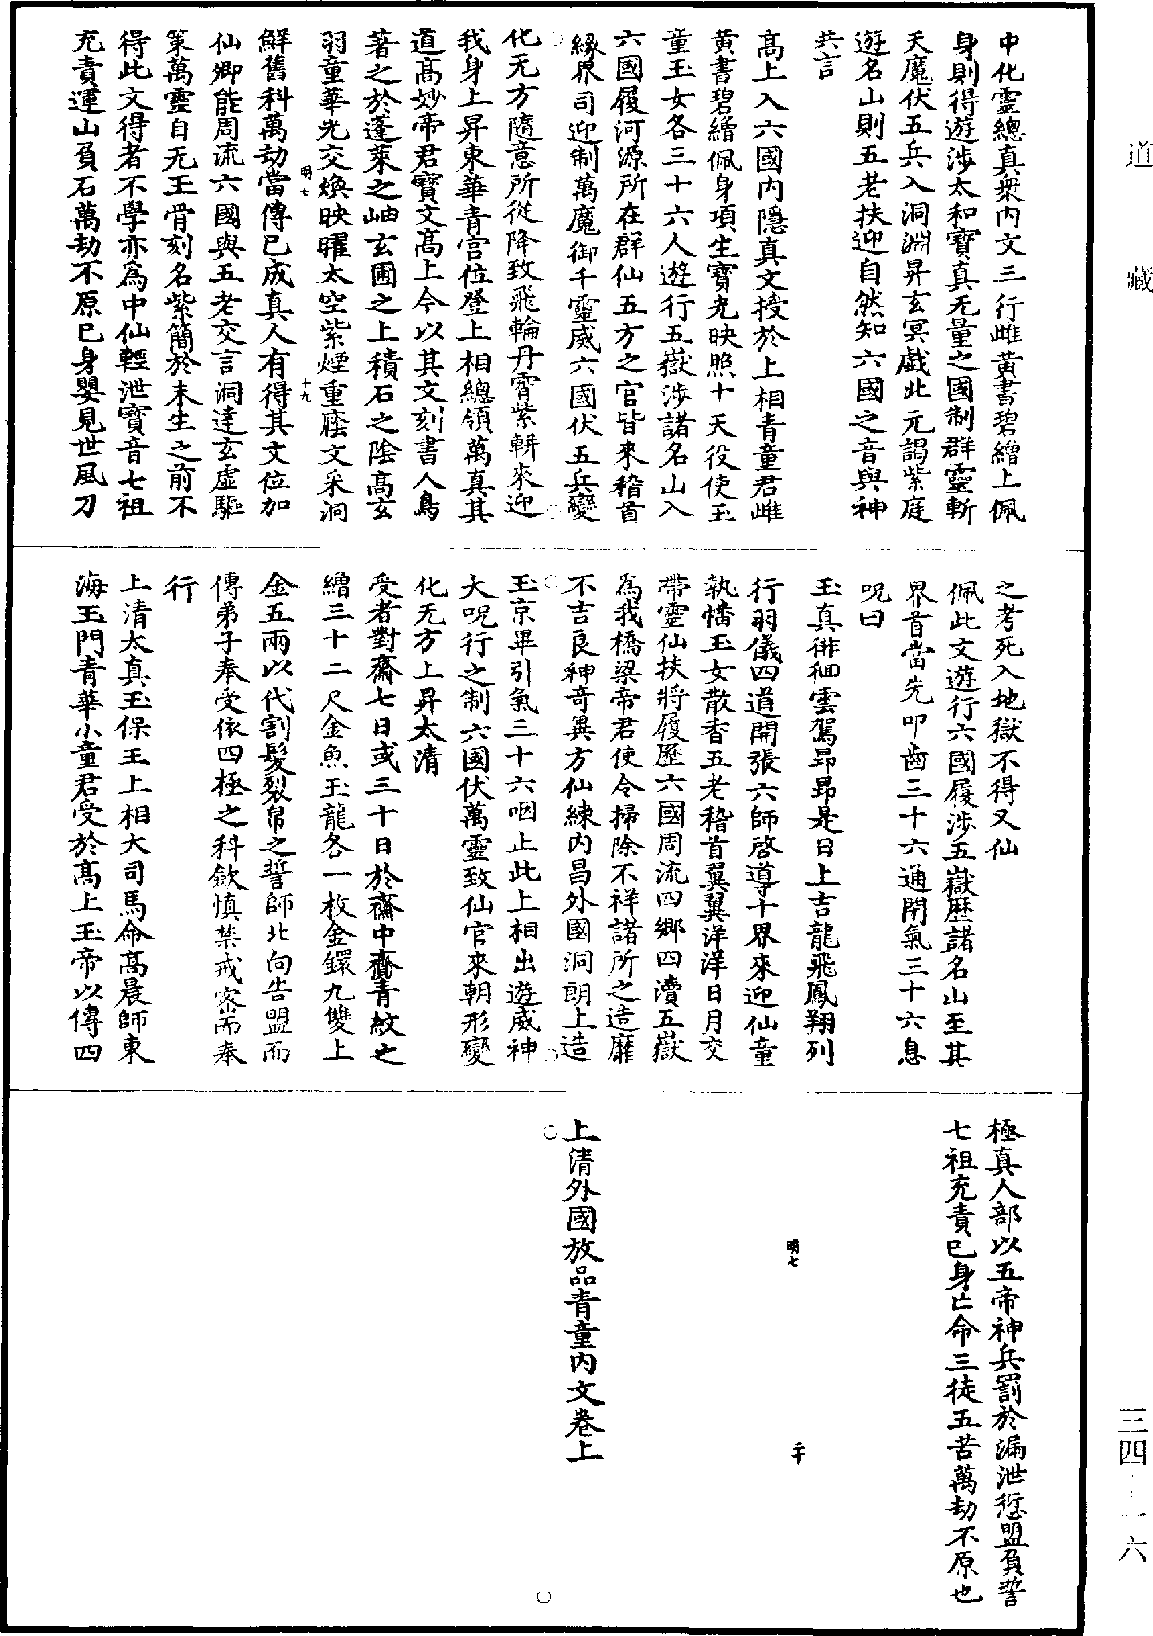 道藏
中化靈總真衆內文三行雌黃書碧繒上佩
身則得遊涉太和寶真无量之國制群靈斬
天魔伏五兵入洞淵昇玄冥戲北元謁紫庭
遊名山則五老扶迎自然知六國之音與神
共言
高上入六國內隱真文授於上相青童君雌
黃書碧繒佩身項生寶光映照十天役使玉
童玉女各三十六人遊行五嶽涉諸名山入
六國履河源所在群仙五方之官皆來稽首
緣界司迎制萬魔御千靈威六國伏五兵變
化无方隨意所從降致飛輪丹霄紫輧來迎
我身上昇東華青宮位登上相總領萬真其
道高妙帝君寶文高上今以其文刻書人鳥
著之於蓬萊之岫玄圃之上積石之陰高玄
羽童華光交煥映曜太空紫煙重蔭文采洞
明七
十九
鮮舊科萬劫當傳已成真人有得其文位加
仙卿能周流六國與五老交言洞達玄虛驅
策萬靈自无玉骨刻名紫簡於未生之前不
得此文得者不學亦為中仙輕泄寶音七祖
充責運山負石萬劫不原已身嬰見世風刀
之考死入地獄不得又仙
佩此文遊行六國履涉五嶽歷諸名山至其
界首當先叩齒三十六通閉氣三十六息
呪曰
玉真徘徊雲駕昂昂是日上吉龍飛鳳翔列
行羽儀四道開張六師啓導十界來迎仙童
執幡玉女散香五老稽首翼翼洋洋日月交
帶靈仙扶將履歷六國周流四鄉四瀆五嶽
為我橋梁帝君使令掃除不祥諸所之造靡
不吉良神奇異方仙練內昌外國洞朗上造
玉京畢引氣三十六咽止此上相出遊威神
大呪行之制六國伏萬靈致仙官來朝形變
化无方上昇太清
受者對齋七日或三十日於齋中齎青紋之
繒三十二尺金魚玉龍各一枚金鐶九雙上
金五兩以代割髮裂帛之誓師北向告盟而
傳弟子奉受依四極之科歛慎禁戒密而奉
行
上清太真玉保王上相大司馬命高晨師東
海玉門青華小童君受於高上玉帝以傳四
極真人部以五帝神兵罰於漏泄愆盟負誓
七祖充責已身亡命三徒五苦萬劫不原也
明七
二十
上清外國放品青童內文卷上
三四-一六